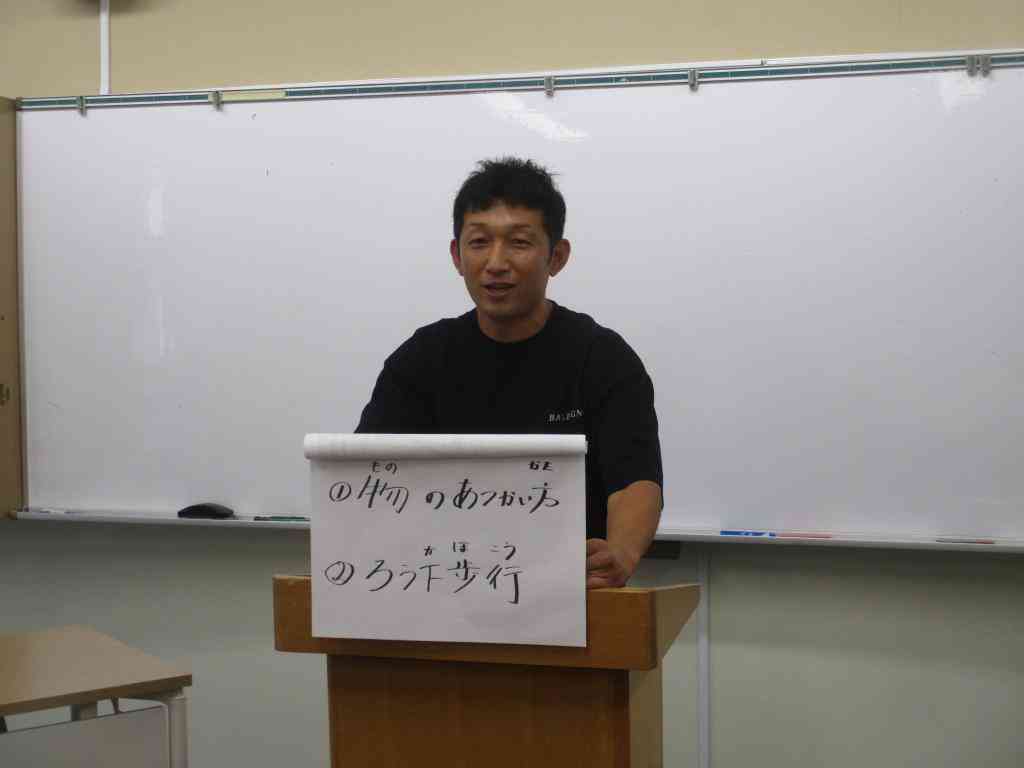 もの かた
①物のあつかい方
か ほ こう
②ろう下歩行